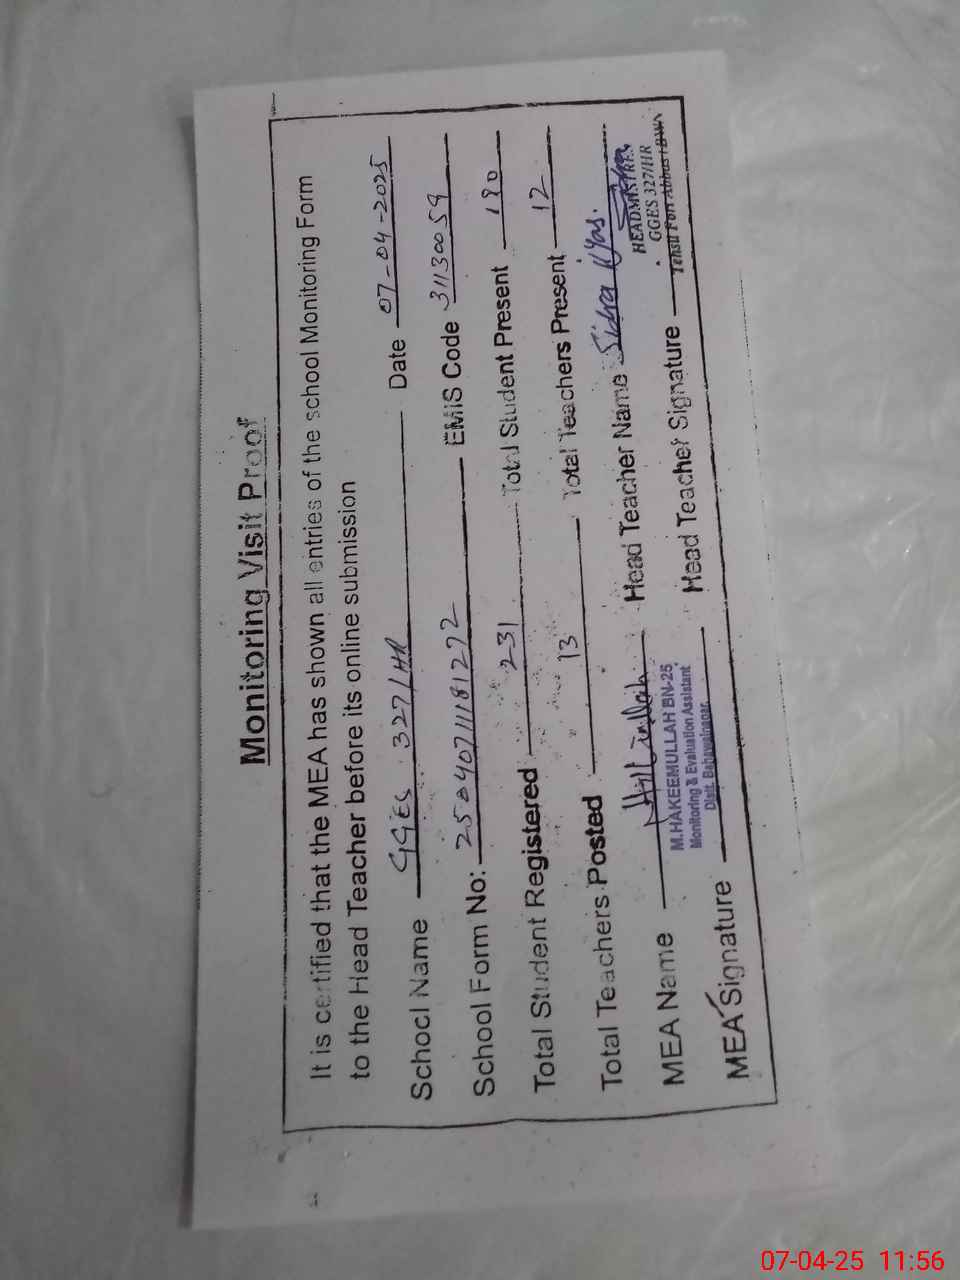 Monitoring Visit Proof
It is certified that the MEA has shown all entries of the school Monitoring Form
to the Head Teacher before its online submission
School Name GGES 327/HR Date 07-04-2025
School Form No: 250407111181272 EMIS Code 31130059
Total Student Registered 231 Total Student Present 190
Total Teachers Posted 13 Total Teachers Present 12
MEA Name Head Teacher Name Sidra Ilyas.
M.HAKEEMULLAH BN-25
Monitoring & Evaluation Assistant
Distt. Bahawalnagar
HEADMISTRESS
GGES 327/HR
Tehsil Fort Abbas (BWN)
MEA Signature Head Teacher Signature
07-04-25 11:56